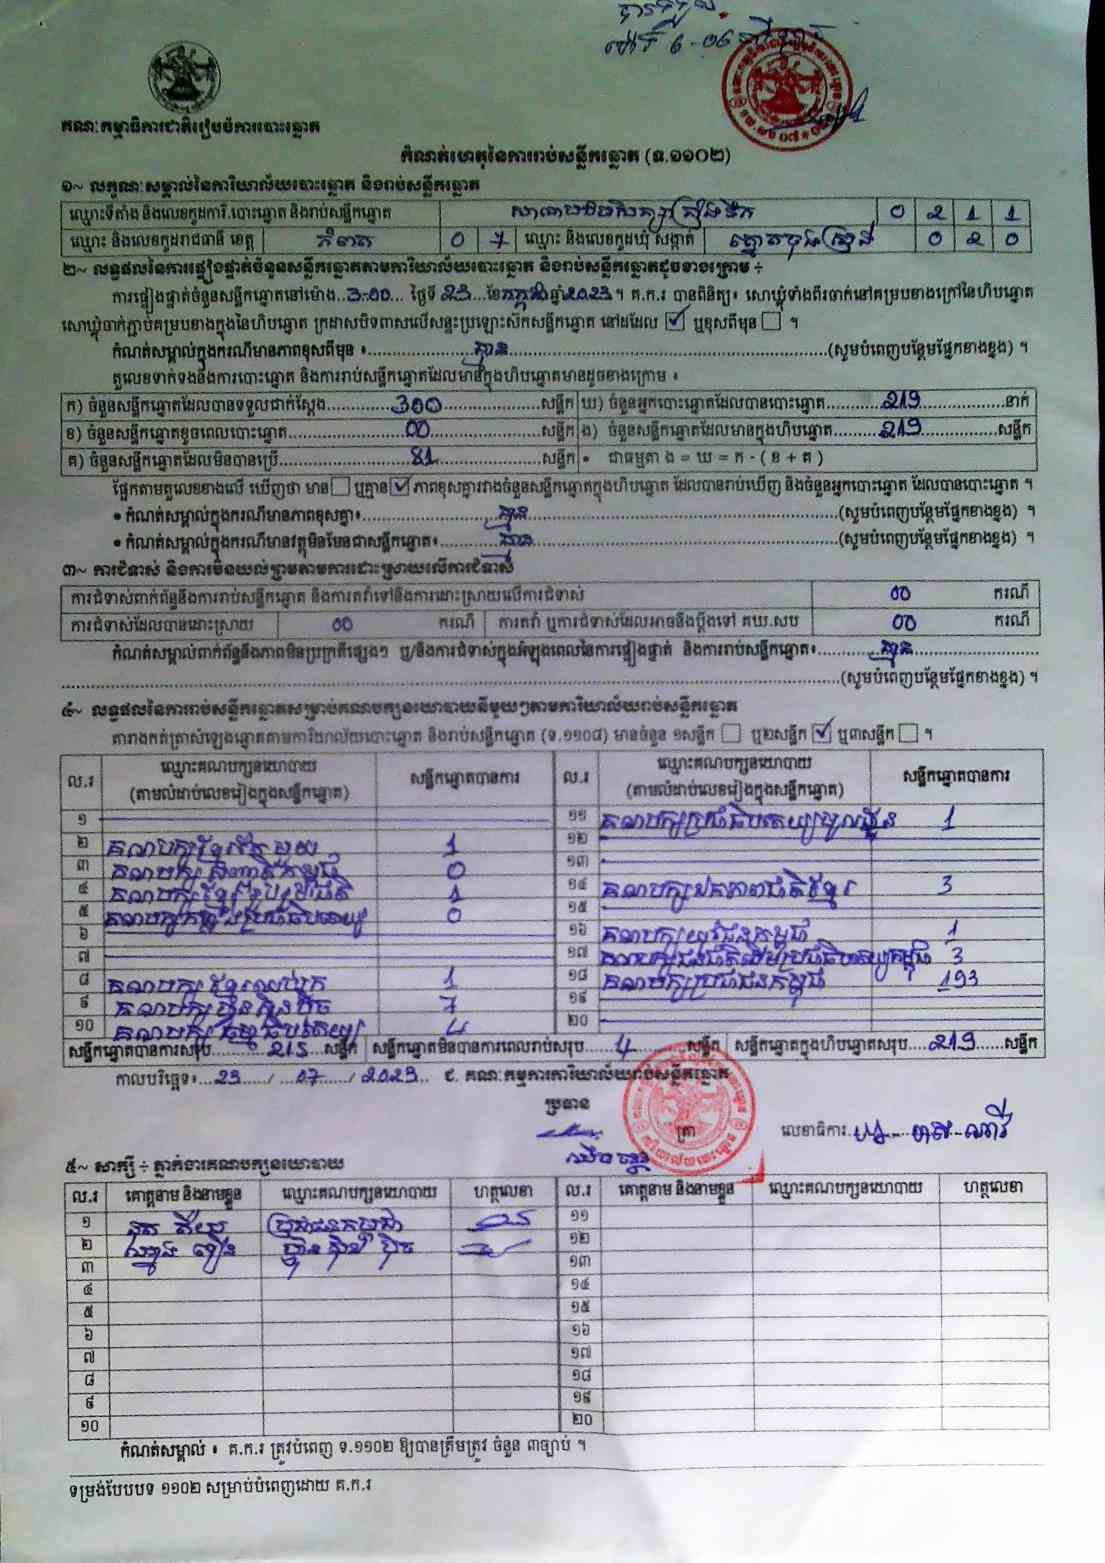 បានទទួល
ម៉ោទី 6-06
គណៈកម្មាធិការជាតិរៀបចំការបោះឆ្នោត
កំណត់ហេតុនៃការរាប់សន្លឹកឆ្នោត (ទ.១១០២)
១~ លក្ខណៈសម្គាល់នៃការិយាល័យបោះឆ្នោត និងរាប់សន្លឹកឆ្នោត
ឈ្មោះទីតាំង និងលេខកូដការិ.បោះឆ្នោត និងរាប់សន្លឹកឆ្នោត 0 2 1 1
ឈ្មោះ និងលេខកូដរាជធានី ខេត្ត កំពត 0 7 ឈ្មោះ និងលេខកូដឃុំ សង្កាត់ ត្នោតចុងស្រង់ 0 2 0
២~ លទ្ធផលនៃការផ្ទៀងផ្ទាត់ចំនួនសន្លឹកឆ្នោតតាមការិយាល័យបោះឆ្នោត និងរាប់សន្លឹកឆ្នោតដូចខាងក្រោម ÷
ការផ្ទៀងផ្ទាត់ចំនួនសន្លឹកឆ្នោតនៅម៉ោង...3:00... ថ្ងៃទី 23 ខែកក្កដា ឆ្នាំ2023។ គ.ក.រ បានពិនិត្យ៖ សោឃ្លុំទាំងពីរចាក់នៅគម្របខាងក្រៅនៃហិបឆ្នោត
សោឃ្លុំចាក់ភ្ជាប់គម្របខាងក្នុងនៃហិបឆ្នោត ក្រដាសបិទពាសលើសន្ទះប្រឡោះស៊កសន្លឹកឆ្នោត នៅដដែល ☑ ឬខុសពីមុន ☐ ។
កំណត់សម្គាល់ក្នុងករណីមានភាពខុសពីមុន ៖ គ្មាន (សូមបំពេញបន្ថែមផ្នែកខាងខ្នង) ។
តួលេខទាក់ទងនឹងការបោះឆ្នោត និងការរាប់សន្លឹកឆ្នោតដែលមានក្នុងហិបឆ្នោតមានដូចខាងក្រោម ៖
ក) ចំនួនសន្លឹកឆ្នោតដែលបានទទួលជាក់ស្តែង 300 សន្លឹក ឃ) ចំនួនអ្នកបោះឆ្នោតដែលបានបោះឆ្នោត 219 នាក់
ខ) ចំនួនសន្លឹកឆ្នោតខូចពេលបោះឆ្នោត 00 សន្លឹក ង) ចំនួនសន្លឹកឆ្នោតដែលមានក្នុងហិបឆ្នោត 219 សន្លឹក
គ) ចំនួនសន្លឹកឆ្នោតដែលមិនបានប្រើ 81 សន្លឹក • ជាធម្មតា ង = ឃ = ក - ( ខ + គ )
ផ្អែកតាមតួលេខខាងលើ ឃើញថា មាន ☐ ឬគ្មាន ☑ ភាពខុសគ្នារវាងចំនួនសន្លឹកឆ្នោតក្នុងហិបឆ្នោត ដែលបានរាប់ឃើញ និងចំនួនអ្នកបោះឆ្នោត ដែលបានបោះឆ្នោត ។
• កំណត់សម្គាល់ក្នុងករណីមានភាពខុសគ្នា៖ គ្មាន (សូមបំពេញបន្ថែមផ្នែកខាងខ្នង) ។
• កំណត់សម្គាល់ក្នុងករណីមានវត្ថុមិនមែនជាសន្លឹកឆ្នោត៖ គ្មាន (សូមបំពេញបន្ថែមផ្នែកខាងខ្នង) ។
៣~ ការជំទាស់ និងការមិនយល់ព្រមតាមការដោះស្រាយលើការជំទាស់
ការជំទាស់ពាក់ព័ន្ធនឹងការរាប់សន្លឹកឆ្នោត និងការតវ៉ាទៅនឹងការដោះស្រាយលើការជំទាស់ 00 ករណី
ការជំទាស់ដែលបានដោះស្រាយ 00 ករណី ការតវ៉ា ឬការជំទាស់ដែលអាចនឹងប្តឹងទៅ គឃ.សប 00 ករណី
កំណត់សម្គាល់ពាក់ព័ន្ធនឹងភាពមិនប្រក្រតីផ្សេងៗ ឬ/និងការជំទាស់ក្នុងអំឡុងពេលនៃការផ្ទៀងផ្ទាត់ និងការរាប់សន្លឹកឆ្នោត៖ គ្មាន
(សូមបំពេញបន្ថែមផ្នែកខាងខ្នង) ។
៤~ លទ្ធផលនៃការរាប់សន្លឹកឆ្នោតសម្រាប់គណបក្សនយោបាយនីមួយៗតាមការិយាល័យរាប់សន្លឹកឆ្នោត
តារាងកត់ត្រាសំឡេងឆ្នោតតាមការិយាល័យបោះឆ្នោត និងរាប់សន្លឹកឆ្នោត (ទ.១១០៨) មានចំនួន ១សន្លឹក ☐ ឬ២សន្លឹក ☑ ឬ៣សន្លឹក ☐ ។
ល.រ ឈ្មោះគណបក្សនយោបាយ (តាមលំដាប់លេខរៀងក្នុងសន្លឹកឆ្នោត) សន្លឹកឆ្នោតបានការ ល.រ ឈ្មោះគណបក្សនយោបាយ (តាមលំដាប់លេខរៀងក្នុងសន្លឹកឆ្នោត) សន្លឹកឆ្នោតបានការ
១ ១១ គណបក្សប្រជាធិបតេយ្យមូលដ្ឋាន 1
២ គណបក្សខ្មែររួបរួម 1 ១២
៣ គណបក្ស សញ្ជាតិកម្ពុជា 0 ១៣
៤ គណបក្ស ខ្មែររួបរួមជាតិ 1 ១៤ គណបក្សឯកភាពជាតិខ្មែរ 3
៥ គណបក្សកម្លាំងប្រជាធិបតេយ្យ 0 ១៥
៦ ១៦ គណបក្សយុវជនកម្ពុជា 1
៧ ១៧ គណបក្សជនជាតិដើមប្រជាធិបតេយ្យកម្ពុជា 3
៨ គណបក្ស ខ្មែរឈប់ក្រ 1 ១៨ គណបក្សប្រជាជនកម្ពុជា 193
៩ គណបក្ស ហ៊្វុនស៊ិនប៉ិច 7 ១៩
១០ គណបក្ស ធម្មាធិបតេយ្យ 4 ២០
សន្លឹកឆ្នោតបានការសរុប 215 សន្លឹក សន្លឹកឆ្នោតមិនបានការពេលរាប់សរុប 4 សន្លឹក សន្លឹកឆ្នោតក្នុងហិបឆ្នោតសរុប 219 សន្លឹក
កាលបរិច្ឆេទ៖ 23 / 07 / 2023 ជ. គណៈកម្មការការិយាល័យរាប់សន្លឹកឆ្នោត
ប្រធាន
ត្រា លេខាធិការ
៥~ សាក្សី ÷ ភ្នាក់ងារគណបក្សនយោបាយ
ល.រ គោត្តនាម និងនាមខ្លួន ឈ្មោះគណបក្សនយោបាយ ហត្ថលេខា ល.រ គោត្តនាម និងនាមខ្លួន ឈ្មោះគណបក្សនយោបាយ ហត្ថលេខា
១ ប្រជាជនកម្ពុជា ១១
២ ហ៊្វុន ស៊ិន ប៉ិច ១២
៣ ១៣
៤ ១៤
៥ ១៥
៦ ១៦
៧ ១៧
៨ ១៨
៩ ១៩
១០ ២០
កំណត់សម្គាល់ ៖ គ.ក.រ ត្រូវបំពេញ ទ.១១០២ ឱ្យបានត្រឹមត្រូវ ចំនួន ៣ច្បាប់ ។
ទម្រង់បែបបទ ១១០២ សម្រាប់បំពេញដោយ គ.ក.រ